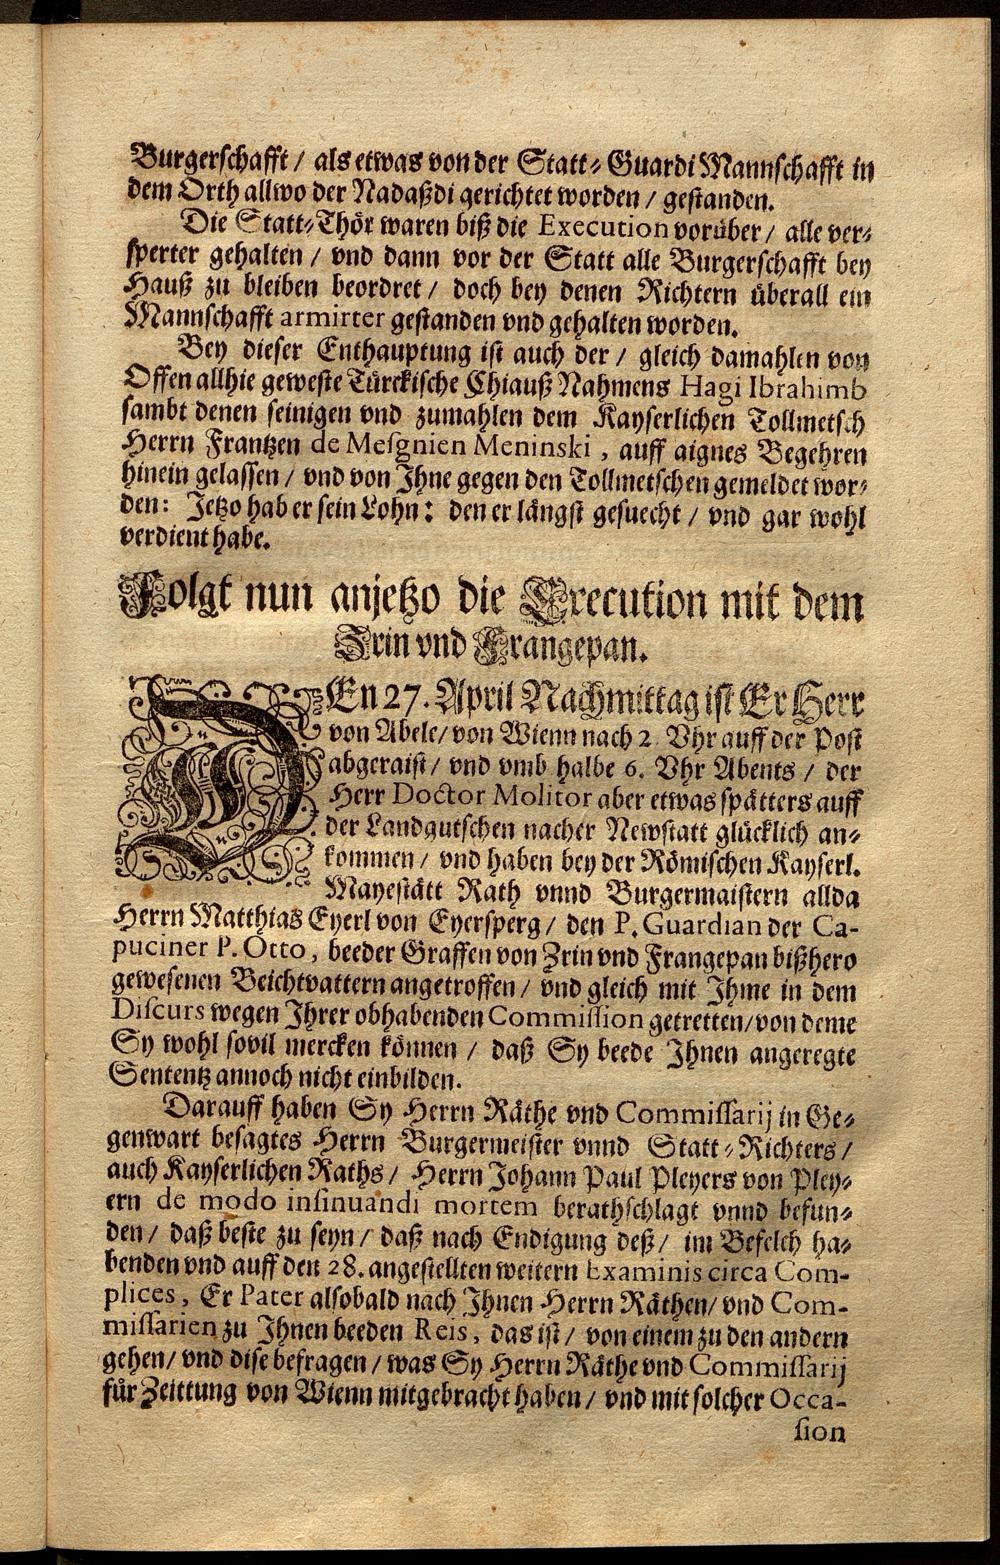 Burgerschafft / als etwas von der Statt-Guardi Mannschafft in
dem Orth allwo der Nadaßdi gerichtet worden / gestanden.
Die Statt-Thör waren biß die Execution vorüber / alle ver-
sperter gehalten / vnd dann vor der Statt alle Burgerschafft bey
Hauß zu bleiben beordret / doch bey denen Richtern überall ein
Mannschafft armirter gestanden vnd gehalten worden.
Bey dieser Enthauptung ist auch der / gleich damahlen von
Offen allhie geweste Türckische Chiauß Nahmens Hagi Ibrahimb
sambt denen seinigen vnd zumahlen dem Kayserlichen Tollmetsch
Herrn Frantzen de Mesgnien Meninski, auff aignes Begehren
hinein gelassen / vnd von Ihne gegen den Tollmetschen gemeldet wor-
den: Jetzo hab er sein Lohn: den er längst gesuecht / vnd gar wohl
verdient habe.
Folgt nun anjetzo die Execution mit dem
Zrin vnd Frangepan.
DEn 27. April Nachmittag ist Er Herr
von Abele / von Wienn nach 2. Vhr auff der Post
abgeraist / vnd vmb halbe 6. Vhr Abents / der
Herr Doctor Molitor aber etwas spätters auff
der Landgutschen nacher Newstatt glücklich an-
kommen / vnd haben bey der Römischen Kayserl.
Mayestätt Rath vnnd Burgermaistern allda
Herrn Matthias Eyerl von Eyersperg / den P. Guardian der Ca-
puciner P. Otto, beeder Graffen von Zrin vnd Frangepan bißhero
gewesenen Beichtvattern angetroffen / vnd gleich mit Ihme in dem
Discurs wegen Ihrer obhabenden Commission getretten / von deme
Sy wohl sovil mercken können / daß Sy beede Ihnen angeregte
Sententz annoch nicht einbilden.
Darauff haben Sy Herrn Räthe vnd Commissarij in Ge-
genwart besagtes Herrn Burgermeister vnnd Statt-Richters /
auch Kayserlichen Raths / Herrn Johann Paul Pleyers von Pley-
ern de modo insinuandi mortem berathschlagt vnnd befun-
den / daß beste zu seyn / daß nach Endigung deß / im Befelch ha-
benden vnd auff den 28. angestellten weitern Examinis circa Com-
plices, Er Pater alsobald nach Ihnen Herrn Räthen / vnd Com-
missarien zu Ihnen beeden Reis, das ist / von einem zu den andern
gehen / vnd dise befragen / was Sy Herrn Räthe vnd Commissarij
für Zeittung von Wienn mitgebracht haben / vnd mit solcher Occa-
sion